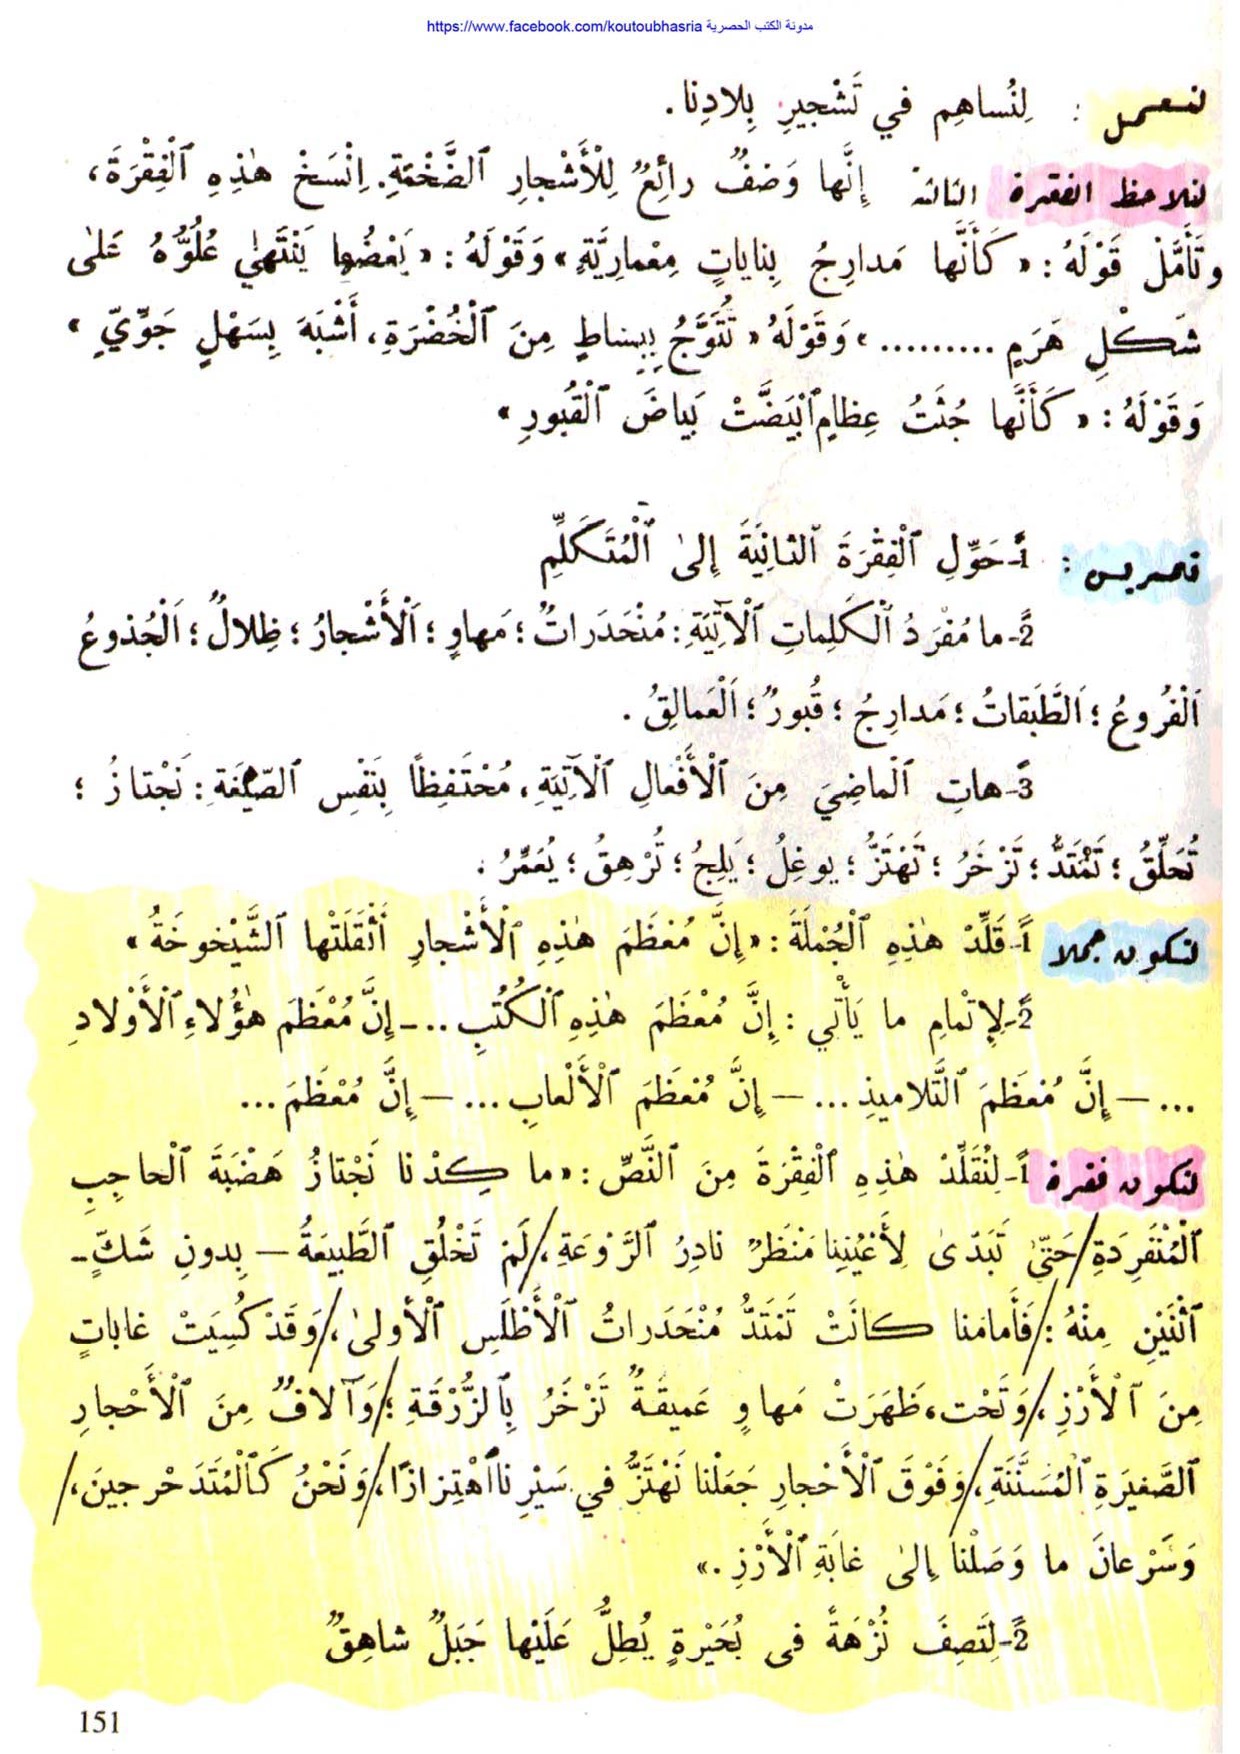 https://www.facebook.com/koutoubhasria مدونة الكتب الحصرية
لنعمل : لِنُساهِم في تَشْجيرِ بِلادِنا .
لنلاحظ الفقرة الثالثة إِنَّها وَصْفٌ رائِعٌ لِلْأَشْجارِ ٱلضَّخْمَةِ. اِنْسَخْ هٰذِهِ ٱلْفِقْرَةَ،
وتَأَمَّلْ قَوْلَهُ : « كَأَنَّها مَدارِجُ بِناياتٍ مِعْمارِيَّةٍ » وَقَوْلَهُ : « بَعْضُها يَنْتَهي عُلُوُّهُ عَلىٰ
شَكْلِ هَرَمٍ ......... » وَقَوْلَهُ « تُتَوَّجُ بِبِساطٍ مِنَ ٱلْخُضْرَةِ، أَشْبَهَ بِسَهْلٍ جَوِّيٍّ »
وَقَوْلَهُ : « كَأَنَّها جُثَثُ عِظامٍ ٱبْيَضَّتْ بَياضَ ٱلْقُبورِ »
تمريس : 1ً-حَوِّلِ ٱلْفِقْرَةَ ٱلثانِيَةَ إِلىٰ ٱلْمُتَكَلِّمِ
2ً-ما مُفْرَدُ ٱلْكَلِماتِ ٱلْآتِيَةِ : مُنْحَدَراتٌ ؛ مَهاوٍ ؛ اَلْأَشْجارُ ؛ ظِلالٌ ؛ اَلْجُذوعُ
اَلْفُروعُ ؛ اَلطَّبَقاتُ ؛ مَدارِجُ ؛ قُبورٌ ؛ اَلْعَمالِقُ .
3ً-هاتِ ٱلْماضِيَ مِنَ ٱلْأَفْعالِ ٱلْآتِيَةِ ، مُحْتَفِظًا بِنَفْسِ ٱلصّيغَةِ : نَجْتازُ ؛
تُحَلِّقُ ؛ تَمْتَدُّ ؛ تَزْخَرُ ؛ تَهْتَزُّ ؛ يوغِلُ ؛ يَلِجُ ؛ تُرْهِقُ ؛ يُعَمِّرُ .
لنكون جملا 1ً-قَلِّدْ هٰذِهِ ٱلْجُمْلَةَ : « إِنَّ مُعْظَمَ هٰذِهِ ٱلْأَشْجارِ أَثْقَلَتْها ٱلشَّيْخوخَةُ »
2ً-لِإِتْمامِ ما يَأْتي : إِنَّ مُعْظَمَ هٰذِهِ ٱلْكُتُبِ ..ـ إِنَّ مُعْظَمَ هٰؤُلاءِ ٱلْأَوْلادِ
... – إِنَّ مُعْظَمَ ٱلتَّلاميذِ ... – إِنَّ مُعْظَمَ ٱلْأَلْعابِ ... – إِنَّ مُعْظَمَ ...
لنكون فقرة 1ً-لِنُقَلِّدْ هٰذِهِ ٱلْفِقْرَةَ مِنَ ٱلنَّصِّ : « ما كِدْنا نَجْتازُ هَضْبَةَ ٱلْحاجِبِ
ٱلْمُنْفَرِدَةِ/حَتّىٰ تَبَدّىٰ لِأَعْيُنِنا مَنْظَرٌ نادِرُ ٱلرَّوْعَةِ،/لَمْ تَخْلُقِ ٱلطَّبيعَةُ – بِدونِ شَكٍّ ـ
ٱثْنَيْنِ مِنْهُ :/فَأَمامَنا كانَتْ تَمْتَدُّ مُنْحَدَراتُ ٱلْأَطْلَسِ ٱلْأولىٰ،/وَقَدْ كُسِيَتْ غاباتٍ
مِنَ ٱلْأَرْزِ،/وَتَحْت، ظَهَرَتْ مَهاوٍ عَميقَةٌ تَزْخَرُ بِٱلزُّرْقَةِ ؛/وَآلافٌ مِنَ ٱلْأَحْجارِ
ٱلصَّغيرَةِ ٱلْمُسَنَّنَةِ،/وَفَوْقَ ٱلْأَحْجارِ جَعَلْنا نَهْتَزُّ في سَيْرِنا ٱهْتِزازًا،/وَنَحْنُ كَٱلْمُتَدَحْرِجينَ،/
وَسُرْعانَ ما وَصَلْنا إِلىٰ غابَةِ ٱلْأَرْزِ .»
2ً-لِتَصِفَ نُزْهَةً في بُحَيْرَةٍ يُطِلُّ عَلَيْها جَبَلٌ شاهِقٌ
151